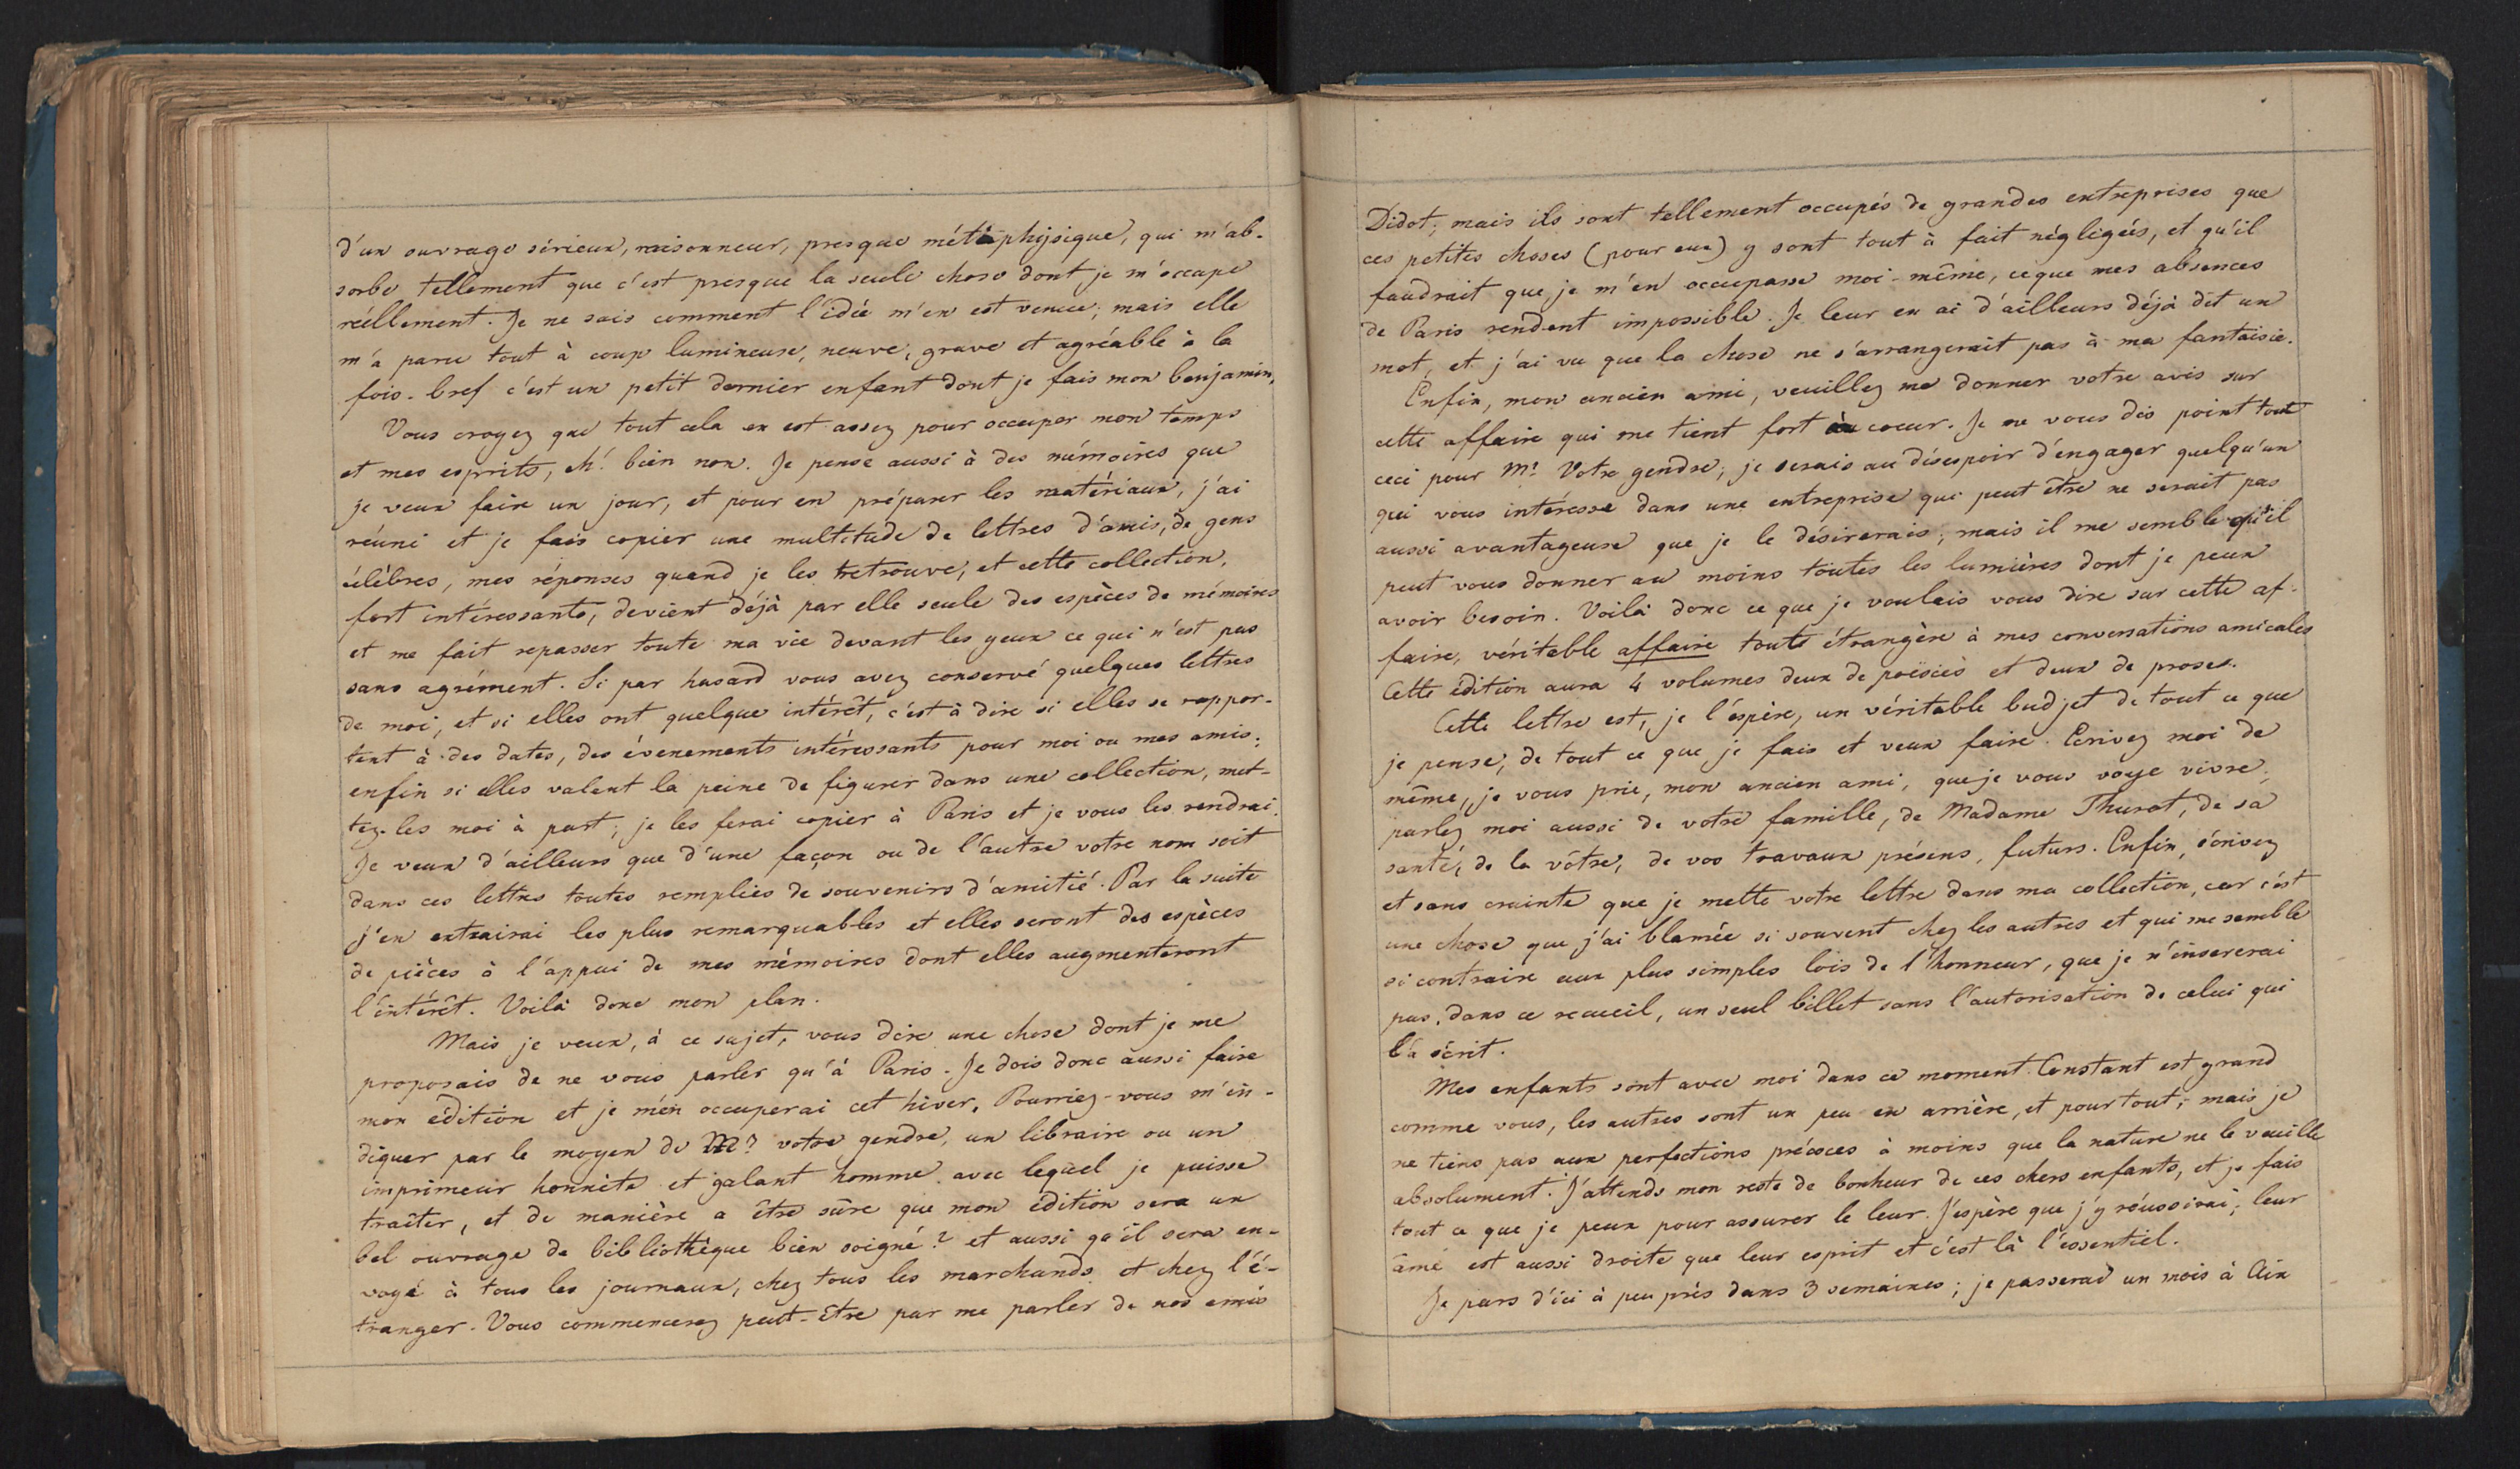 d'un ouvrage sérieux, raisonneur, presque métaphysique, qui m'ab-
sorbe tellement que c'est presque la seule chose dont je m'occupe
réellement. Je ne sais comment l'idée m'en est venue; mais elle
m'a paru tout à coup lumineuse, neuve, grave et agréable à la
fois. bref c'est un petit dernier enfant dont je fais mon benjamin,
Vous croyez que tout cela en est assez pour occuper mon temps
et mes esprits, eh! bien non. Je pense aussi à des mémoires que
je veux faire un jour, et pour en préparer les matériaux, j'ai
réuni et je fais copier une multitude de lettres d'amis, de gens
célèbres, mes réponses quand je les retrouve, et cette collection,
fort intéressante, devient déjà par elle seule des espèces de mémoires
et me fait repasser toute ma vie devant les yeux ce qui n'est pas
sans agrément. Si par hasard vous avez conservé quelques lettres
de moi, et si elles ont quelque intérêt, c'est à dire si elles se rappor-
tent à des dates, des évenements intéressants pour moi ou mes amis;
enfin si elles valent la peine de figurer dans une collection, met-
tez-les moi à part; je les ferai copier à Paris et je vous les rendrai.
Je veux d'ailleurs que d'une façon ou de l'autre votre nom soit
dans ces lettres toutes remplies de souvenirs d'amitié. Par la suite
j'en extrairai les plus remarquables et elles seront des espèces
de pièces à l'appui de mes mémoires dont elles augmenteront
l'intérêt. Voilà donc mon plan.
Mais je veux, à ce sujet, vous dire une chose dont je me
proposais de ne vous parler qu'à Paris. Je dois donc aussi faire
mon édition et je m'en occuperai cet hiver. Pourriez-vous m'in-
diquer par le moyen de Mr votre gendre, un libraire ou un
imprimeur honnête et galant homme avec lequel je puisse
traiter, et de manière a être sûre que mon édition sera un
bel ouvrage de bibliothèque bien soigné? et aussi qu'il sera en-
voyé à tous les journaux, chez tous les marchands et chez l'é-
tranger. Vous commencerez peut-être par me parler de nos amis
Didot; mais ils sont tellement occupés de grandes entreprises que
ces petites choses (pour eux) y sont tout à fait négligées, et qu'il
faudrait que je m'en occupasse moi-même, ce que mes absences
de Paris rendent impossible. Je leur en ai d'ailleurs déjà dit un
mot, et j'ai vu que la chose ne s'arrangerait pas à ma fantaisie.
Enfin, mon ancien ami, veuillez me donner votre avis sur
cette affaire qui me tient fort au coeur. Je ne vous dis point tout
ceci pour Mr. Votre gendre; je serais au désespoir d'engager quelqu'un
qui vous intéresse dans une entreprise qui peut être ne serait pas
aussi avantageuse que je le désirerais; mais il me semble qu'il
peut vous donner au moins toutes les lumières dont je peux
avoir besoin. Voilà donc ce que je voulais vous dire sur cette af-
faire, véritable affaire toute étrangère à mes conversations amicales
Cette édition aura 4 volumes deux de poësies et deux de proses.
Cette lettre est, je l'espère, un véritable budjet de tout ce que
je pense, de tout ce que je fais et veux faire. Ecrivez moi de
même, je vous prie, mon ancien ami, que je vous voye vivre;
parlez moi aussi de votre famille, de Madame Thurot, de sa
santé, de la vôtre, de vos travaux présens, futurs. Enfin, écrivez
et sans crainte que je mette votre lettre dans ma collection, car c'est
une chose que j'ai blamée si souvent chez les autres et qui me semble
si contraire aux plus simples lois de l'honneur, que je n'insererai
pas, dans ce recueil, un seul billet sans l'autorisation de celui qui
l'a écrit.
Mes enfants sont avec moi dans ce moment. Constant est grand
comme vous, les autres sont un peu en arrière, et pour tout; mais je
ne tiens pas aux perfections précoces à moins que la nature ne le veuille
absolument. J'attends mon reste de bonheur de ces chers enfants, et je fais
tout ce que je peux pour assurer le leur. J'espère que j'y réussirai; leur
âme est aussi droite que leur esprit et c'est là l'essentiel.
Je pars d'ici à peu près dans 3 semaines; je passerai un mois à Aix